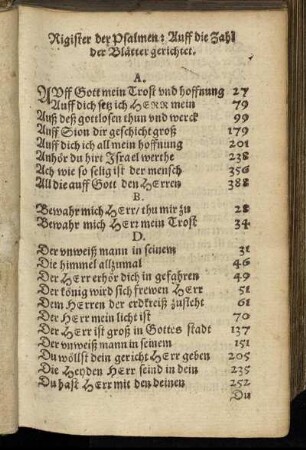 Rigister der Psalmen: Auff die Zahl
der Blätter gerichtet.
A.
AVff Gott mein Trost vnd hoffnung 27
Auff dich setz ich HERR mein 79
Auß deß gottlosen thun vnd werck 99
Auff Sion dir geschicht groß 179
Auff dich ich all mein hoffnung 201
Anhör du hirt Israel werthe 238
Ach wie so selig ist der mensch 356
All die auff Gott den HErren 388
B.
Bewahr mich HErr/ thu mir zu 28
Bewahr mich HErr mein Trost 34
D.
Der vnweiß mann in seinem 31
Die himmel allzumal 46
Der HErr erhör dich in gefahren 49
Der könig wird sich frewen HErr 51
Dem HErren der erdkreiß zusteht 61
Der HErr mein licht ist 70
Der HErr ist groß in Gottes stadt 137
Der vnweiß mann in seinem 151
Du wöllst dein gericht HErr geben 205
Die Heyden HErr seind in dein 235
Du hast HErr mit den deinen 252
Du